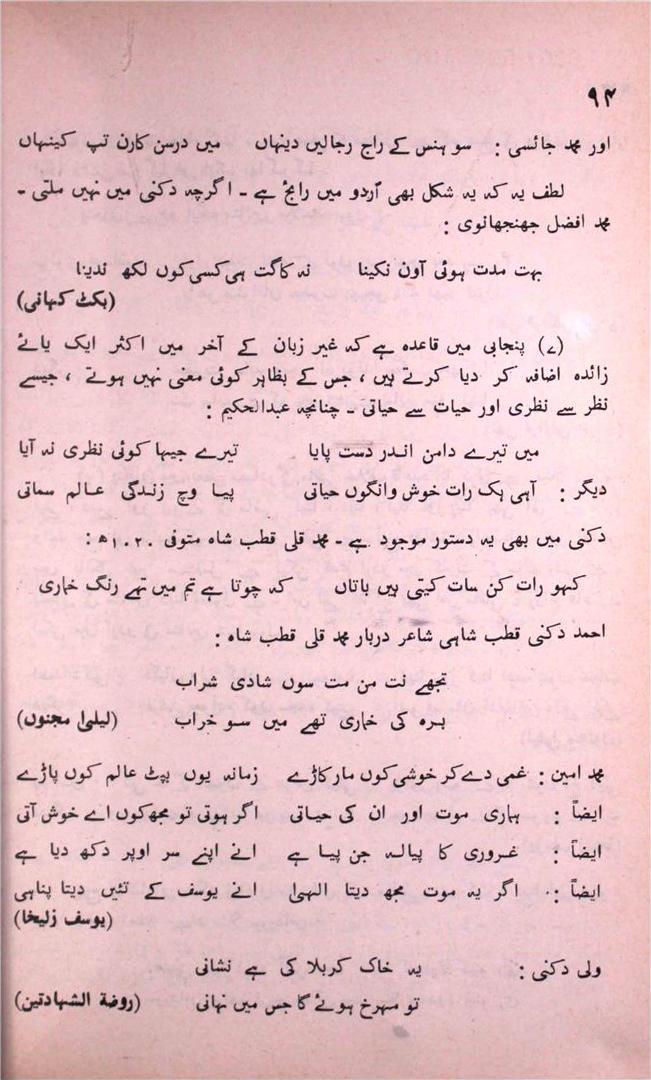 ۹۴
اور محمد جائسی : سو ہنس کے راج رجالیں دینہاں میں درسن کارن تپ کینہاں
لطف یہ کہ یہ شکل بھی اُردو میں رائج ہے ۔ اگرچہ دکنی میں نہیں ملتی ۔
محمد افضل جھنجھانوی :
بہت مدت ہوئی آون نکینا نہ کاگت ہی کسی کوں لکھ ندینا
(بکٹ کہانی)
(۷) پنجابی میں قاعدہ ہے کہ غیر زبان کے آخر میں اکثر ایک یائے
زائدہ اضافہ کر دیا کرتے ہیں ، جس کے بظاہر کوئی معنی نہیں ہوتے ، جیسے
نظر سے نظری اور حیات سے حیاتی ۔ چنانچہ عبدالحکیم :
میں تیرے دامن اندر دست پایا تیرے جیہا کوئی نظری نہ آیا
دیگر : آہی ہک رات خوش وانگوں حیاتی پیا وچ زندگی عالم سماتی
دکنی میں بھی یہ دستور موجود ہے ۔ محمد قلی قطب شاہ متوفی ۱۰۲۰ھ :
کہو رات کن سات کیتی ہیں باتاں کہ چوتا ہے تم میں تھے رنگ خماری
احمد دکنی قطب شاہی شاعر دربار محمد قلی قطب شاہ :
تجھے نت من مت سوں شادی شراب
برہ کی خماری تھے میں سو خراب (لیلیٰ مجنوں)
محمد امین : غمی دے کر خوشی کوں مار کاڑے زمانہ یوں بپٹ عالم کوں پاڑے
ایضاً : ہماری موت اور ان کی حیاتی اگر ہوتی تو مجھ کوں اے خوش آتی
ایضاً : غروری کا پیالہ جن پیا ہے انے اپنے سر اوپر دکھ دیا ہے
ایضاً : اگر یہ موت مجھ دیتا الٰہی انے یوسف کے تئیں دیتا پناہی
(یوسف زلیخا)
ولی دکنی : یہ خاک کربلا کی ہے نشانی
تو مہرخ ہوئے گا جس میں نہانی (روضة الشہادتین)